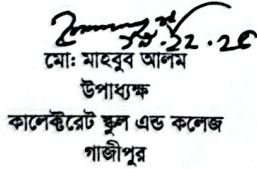 মো: মাহবুব আলম
উপাধ্যক্ষ
কালেক্টরেট স্কুল এন্ড কলেজ
গাজীপুর